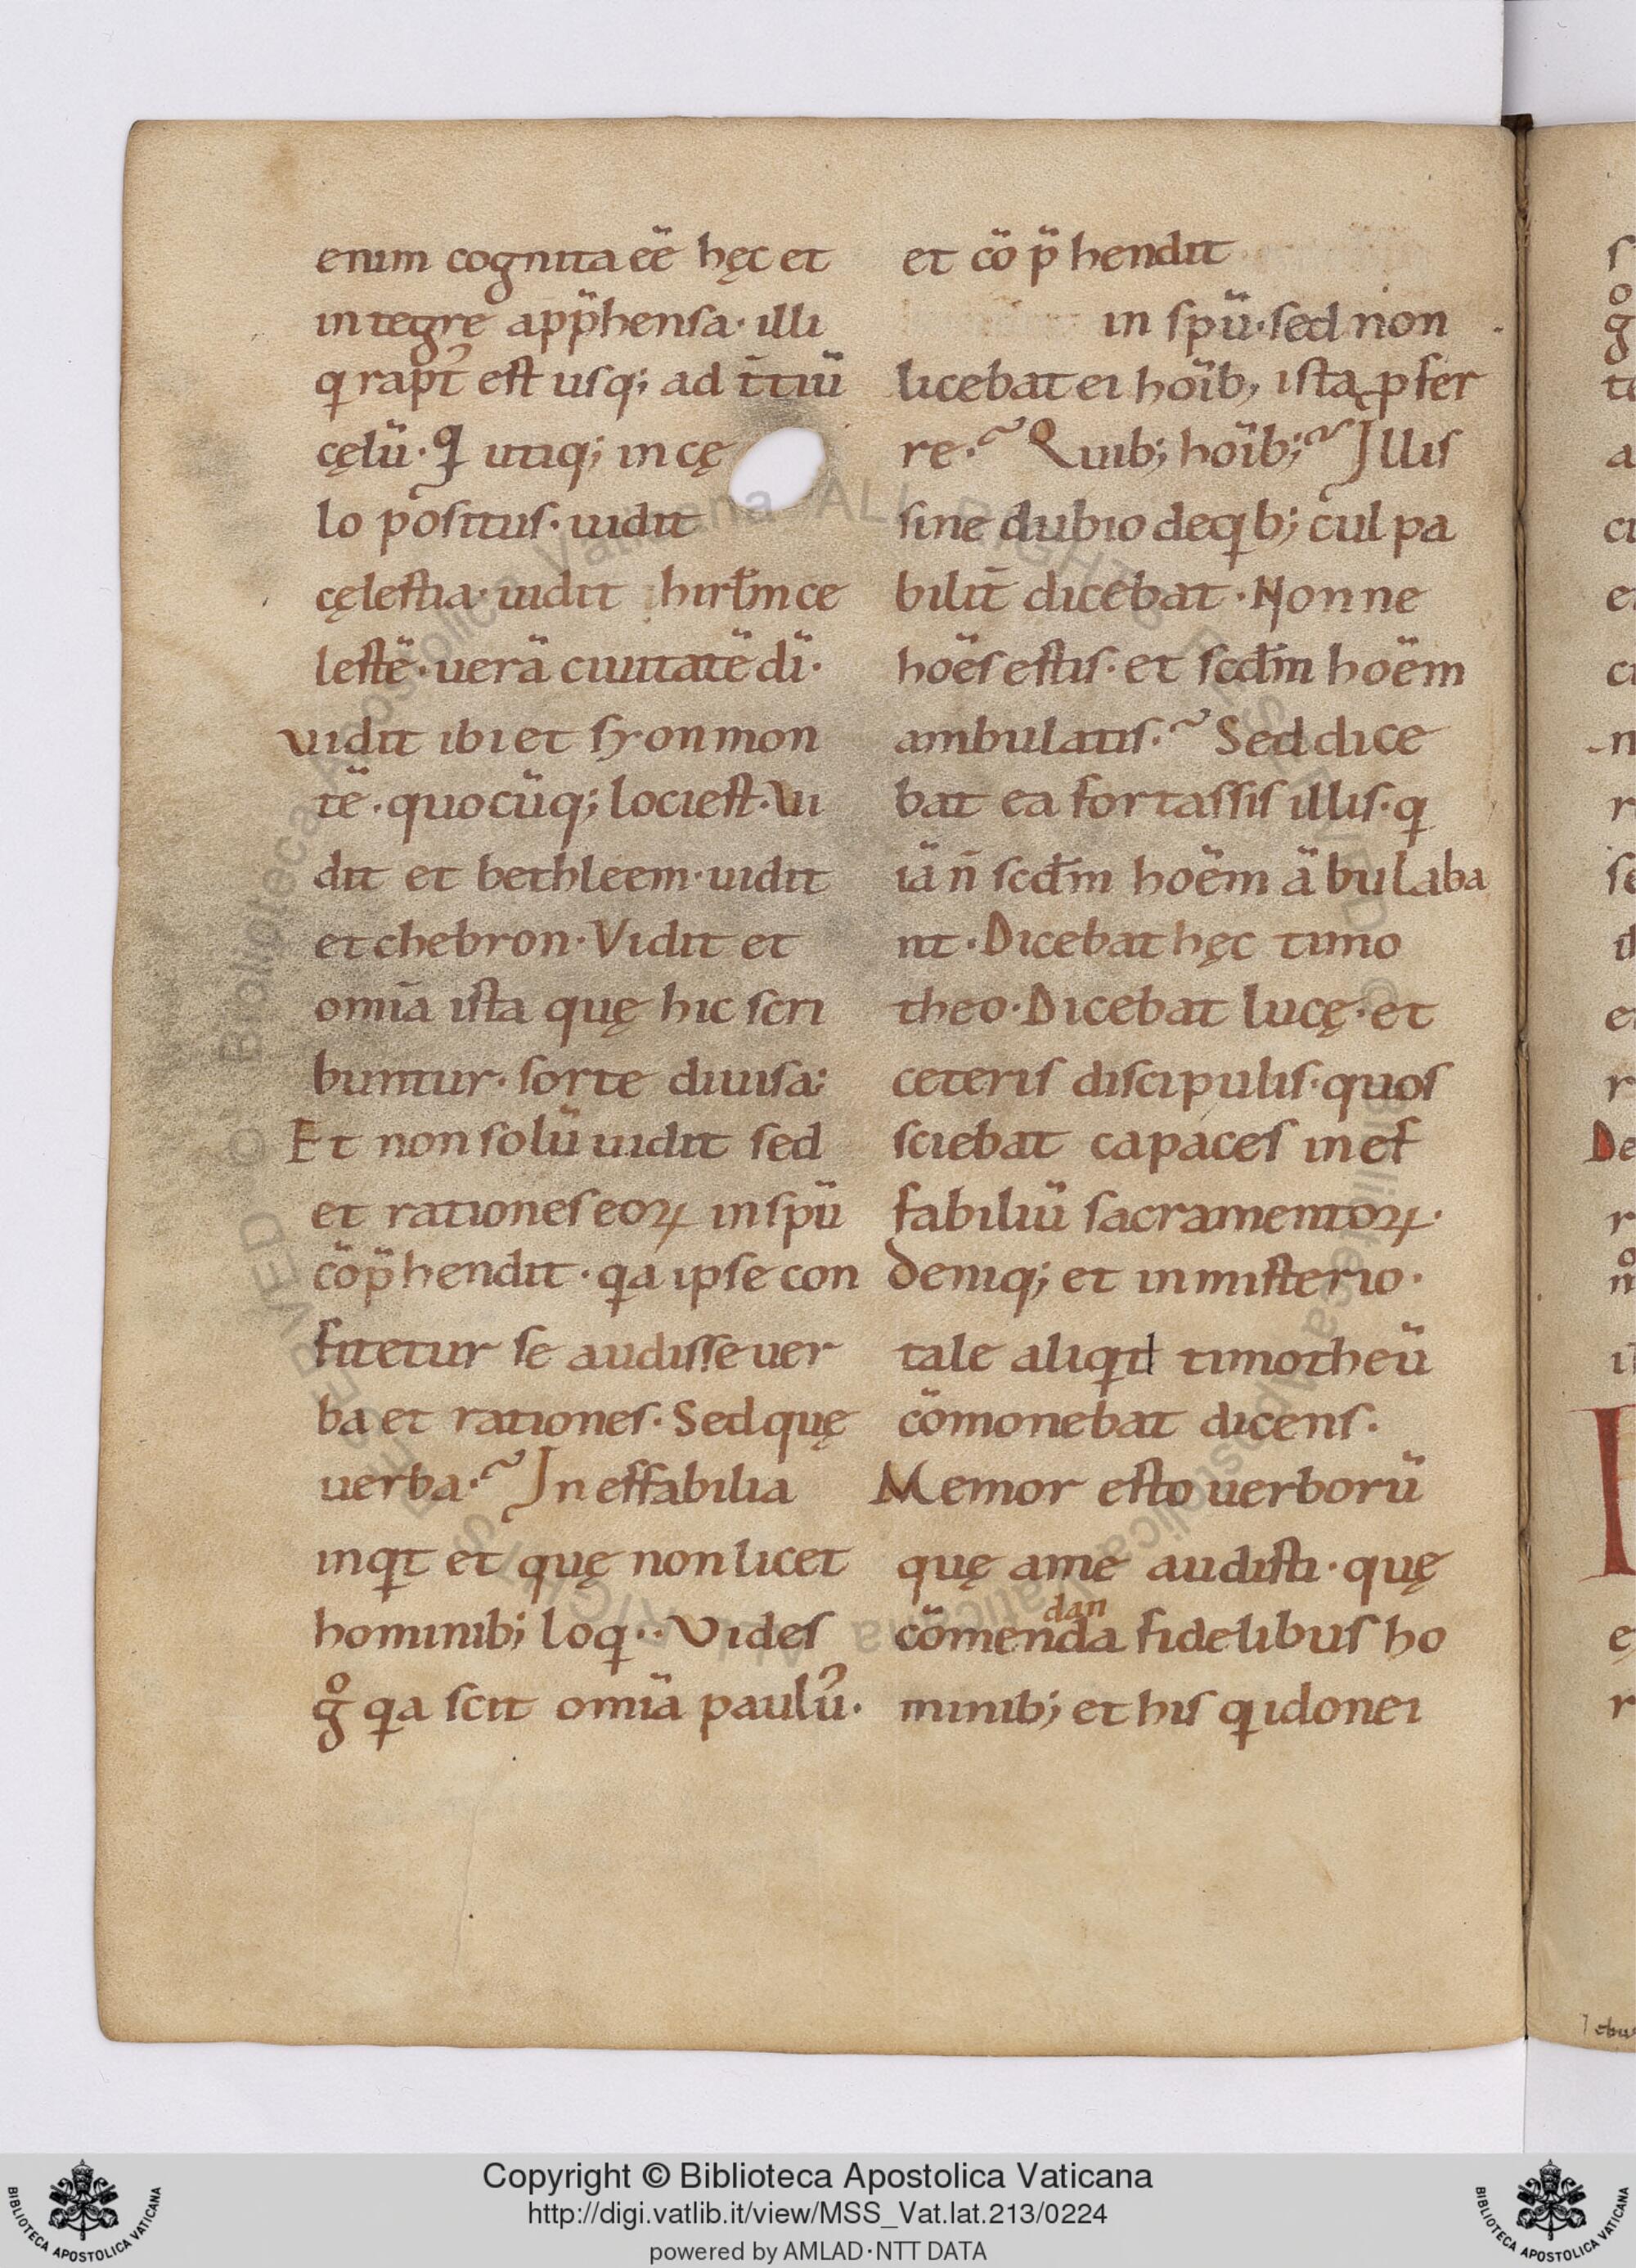 enim cognita eē hęc et
integre app̄hensa· illi
q rapt᾽ est usq; ad t̄tiū
cęlū· q utiq; in cę
lo positus· uidit
cęlestia· uidit hirłm ce
lestē· uerā ciuitatē dī·
vidit ibi et syon mon
tē· quocūq; loci est· Vi
dit et bethleem· uidit
et chebron· Vidit et
om̄ia ista quę hic scri
buntur· sorte diuisa:
Et non solū uidit sed
et rationes eoꝝ in spū
cōp̄hendit· qa ipse con
fitetur se audisse uer
ba et rationes· Sed quę
uerba·~ Ineffabilia
inqt et quę non licet
hominib; loq·· Vides
g̊ qa scit om̄ia paulu᾽·
et cō p̄hendit
in spū· sed non
licebat ei hoīb; ista ꝓfer
re·~ Quib; hoīb;~ Illis
sine dubio de qb; culpa
bilit̄ dicebat· Nonne
hoēs estis· et scđm hoēm
ambulatis·~ Sed dice
bat ea fortassis illis· q
iā n̄ scđm hoēm ābulaba
nt· Dicebat hęc timo
theo· Dicebat lucę· et
ceteris discipulis· quos
sciebat capaces inef
fabiliū sacramentoꝝ·
Deniq; et in misterio·
tale aliqd timotheū
cōmonebat dicens·
Memor esto uerborū
quę a me audisti· quę
dan
cōmenda fidelibus ho
minib; et his q idonei
s
g̊
te
a
cu
e
cu
n
r
se
d
e
r
De
r
m̊
e
r
Copyright © Biblioteca Apostolica Vaticana
http://digi.vatlib.it/view/MSS_Vat.lat.213/0224
powered by AMLAD·NTT DATA
BIBLIOTECA APOSTOLICA VATICANA
BIBLIOTECA APOSTOLICA VATICANA